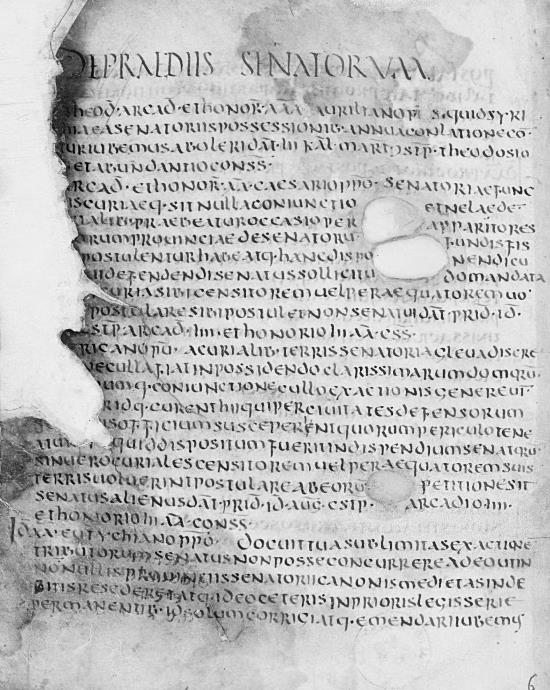 DE PRAEDIIS SENATORUM.
theod· arcad· et honor· aaa· auriliano pu· siquid syri
senatoriis possessionib· annua conlatione
iubemus aboleri dat· iii kal· mart· stp· theodosio
et abundantio conss·
arcad· et honor· aa· caesario ppo· senatoriae func
is curiaeq· sit nulla coniunctio et ne laede
praebeatur occasio per apparitores
provinciae de senatoru fundis fis
postulentur habeatq· hanc dispo nendi cu
defendendi senatus sollicitu do mandata
curia sibi censitorem uel peraequatorem uo
postulare sibi postulet non senatui dat· prid· id·
stp· arcad· iiii· et honorio iii· aa· css·
africano pu· a curialib· terris senatoria gleua discre
ne culla fiat in possidendo clarissimarum domoru
coniunctione cullo exactionis genere ut
curent hi qui per ciuitates defensorum
officium susceperent quorum periculo tene
quid dispositum fuerit in dispendium senatoru
sin uero curiales censitorem uel peraequatorem suis
terris uoluerint postulare ab eoru petitione sit
senatus alienus dat· prid· id· aug· cstp· arcadio iiii·
et honorio iii· aa· conss·
Idaa· eutychiano ppo· docuit tua sublimitas exactione
tributorum senatus non posse concurrere adeo ut in
non nullis prouinciis senatorii canonis medietas in de
bitis resederet atq· ideo ceteris in prioris legis serie
permanentib· id solum corrici atq· emendari iubemus
6